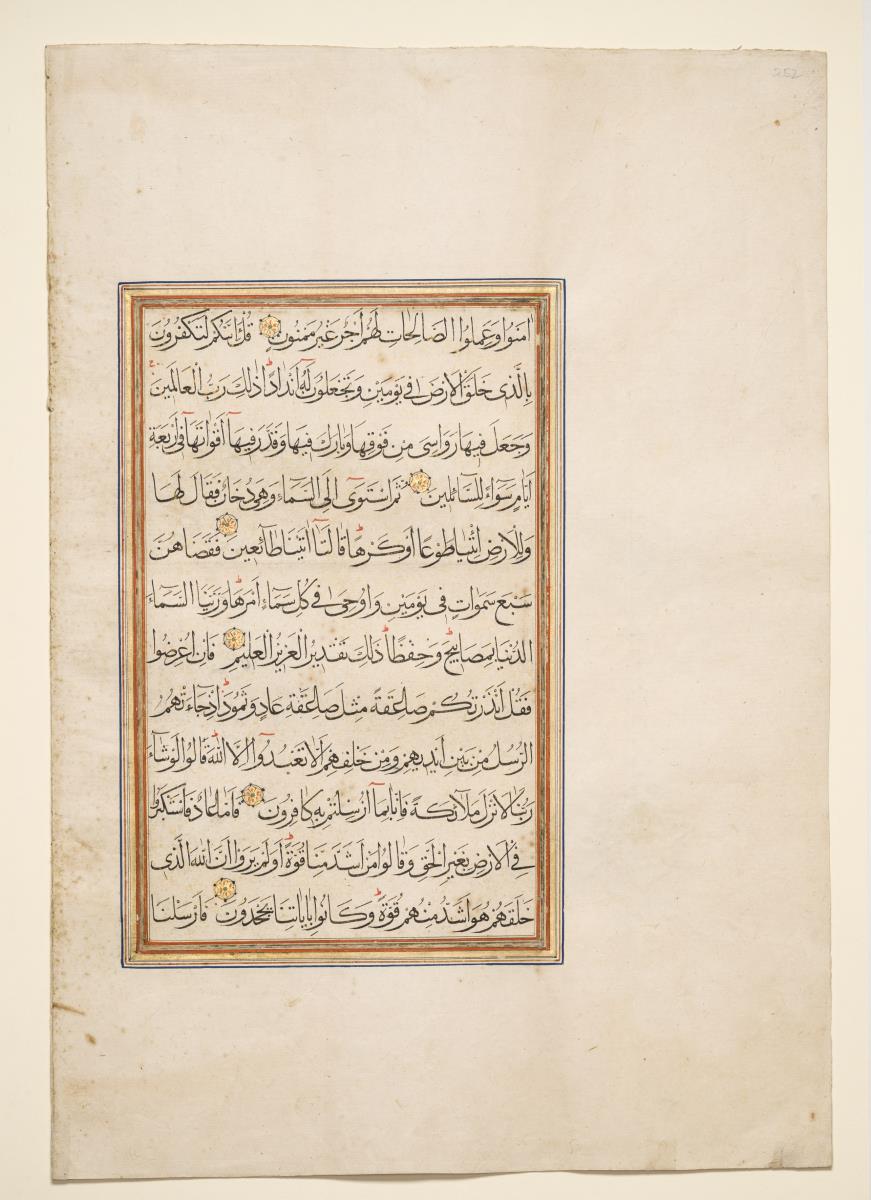 252
اٰمَنُوا وَعَمِلُوا الصَّالِحَاتِ لَهُمْ أَجْرٌ غَيْرُ مَمْنُونٍ قُلْ أَئِنَّكُمْ لَتَكْفُرُونَ
بِالَّذِى خَلَقَ الْاَرْضَ فِى يَوْمَيْنِ وَتَجْعَلُونَ لَهُ أَنْدَادًا ذٰلِكَ رَبُّ الْعَالَمِينَ
وَجَعَلَ فِيهَا رَوَاسِىَ مِنْ فَوْقِهَا وَبَارَكَ فِيهَا وَقَدَّرَ فِيهَا أَقْوَاتَهَا فِى أَرْبَعَةِ
أَيَّامٍ سَوَاءً لِلسَّائِلِينَ ثُمَّ اسْتَوٰى إِلَى السَّمَاءِ وَهِىَ دُخَانٌ فَقَالَ لَهَا
وَلِلْاَرْضِ ائْتِيَا طَوْعًا أَوْ كَرْهًا قَالَتَا أَتَيْنَا طَائِعِينَ فَقَضَاهُنَّ
سَبْعَ سَمٰوَاتٍ فِى يَوْمَيْنِ وَاَوْحٰى فِى كُلِّ سَمَاءٍ أَمْرَهَا وَزَيَّنَّا السَّمَاءَ
الدُّنْيَا بِمَصَابِيحَ وَحِفْظًا ذٰلِكَ تَقْدِيرُ الْعَزِيزِ الْعَلِيمِ فَاِنْ اَعْرَضُوا
فَقُلْ أَنْذَرْتُكُمْ صَاعِقَةً مِثْلَ صَاعِقَةِ عَادٍ وَثَمُودَ اِذْ جَاءَتْهُمُ
الرُّسُلُ مِنْ بَيْنِ أَيْدِيهِمْ وَمِنْ خَلْفِهِمْ أَلَّا تَعْبُدُوا اِلَّا اللّٰهَ قَالُوا لَوْ شَاءَ
رَبُّنَا لَاَنْزَلَ مَلَائِكَةً فَاِنَّا بِمَا أُرْسِلْتُمْ بِهِ كَافِرُونَ فَاَمَّا عَادٌ فَاسْتَكْبَرُوا
فِى الْاَرْضِ بِغَيْرِ الْحَقِّ وَقَالُوا مَنْ اَشَدُّ مِنَّا قُوَّةً أَوَلَمْ يَرَوْا أَنَّ اللّٰهَ الَّذِى
خَلَقَهُمْ هُوَ اَشَدُّ مِنْهُمْ قُوَّةً وَكَانُوا بِاٰيَاتِنَا يَجْحَدُونَ فَاَرْسَلْنَا